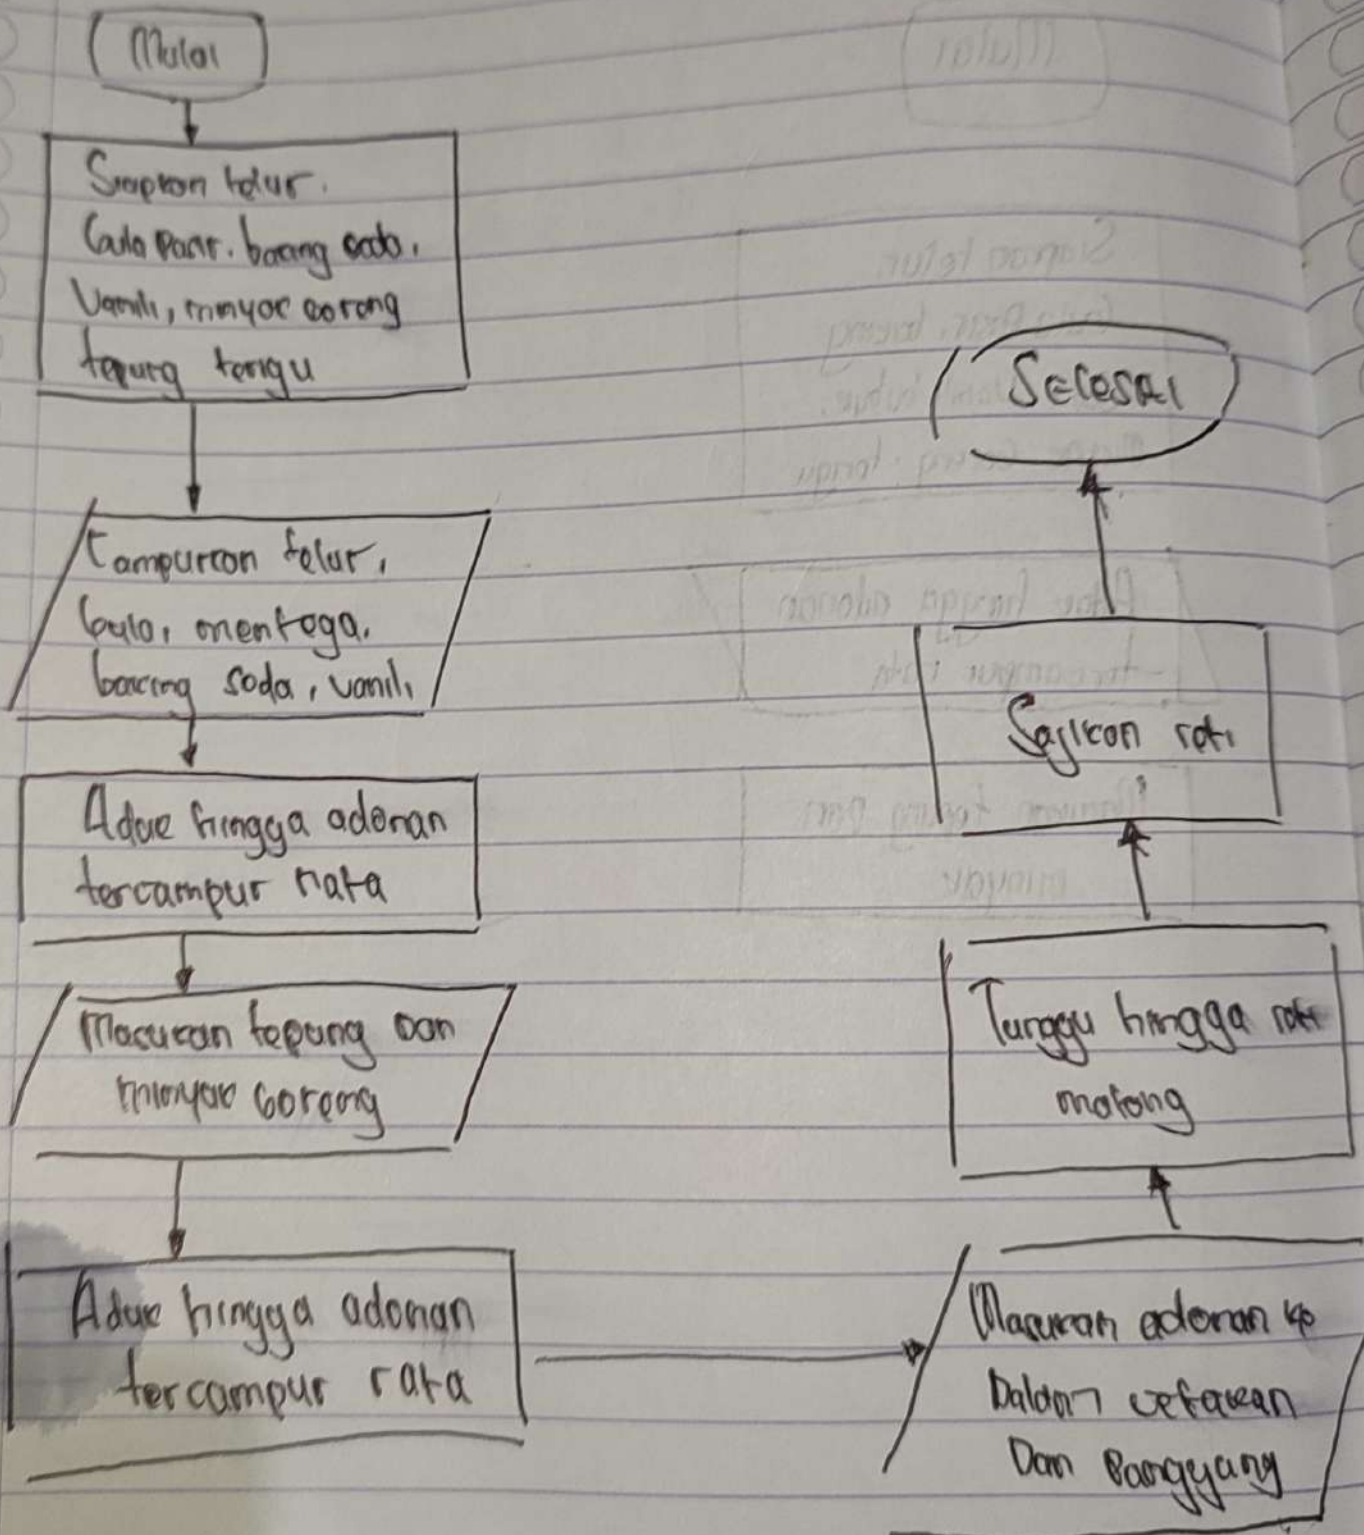 Mulai
Siapkan telur,
Gula pasir, baking soda,
Vanili, minyak goreng
tepung terigu
Campurkan telur,
gula, mentega,
baking soda, vanili
Aduk hingga adonan
tercampur rata
Masukan tepung dan
minyak goreng
Aduk hingga adonan
tercampur rata
Masukan adonan ke
Dalam cetakan
Dan panggang
Tunggu hingga roti
matang
Sajikan roti
Selesai